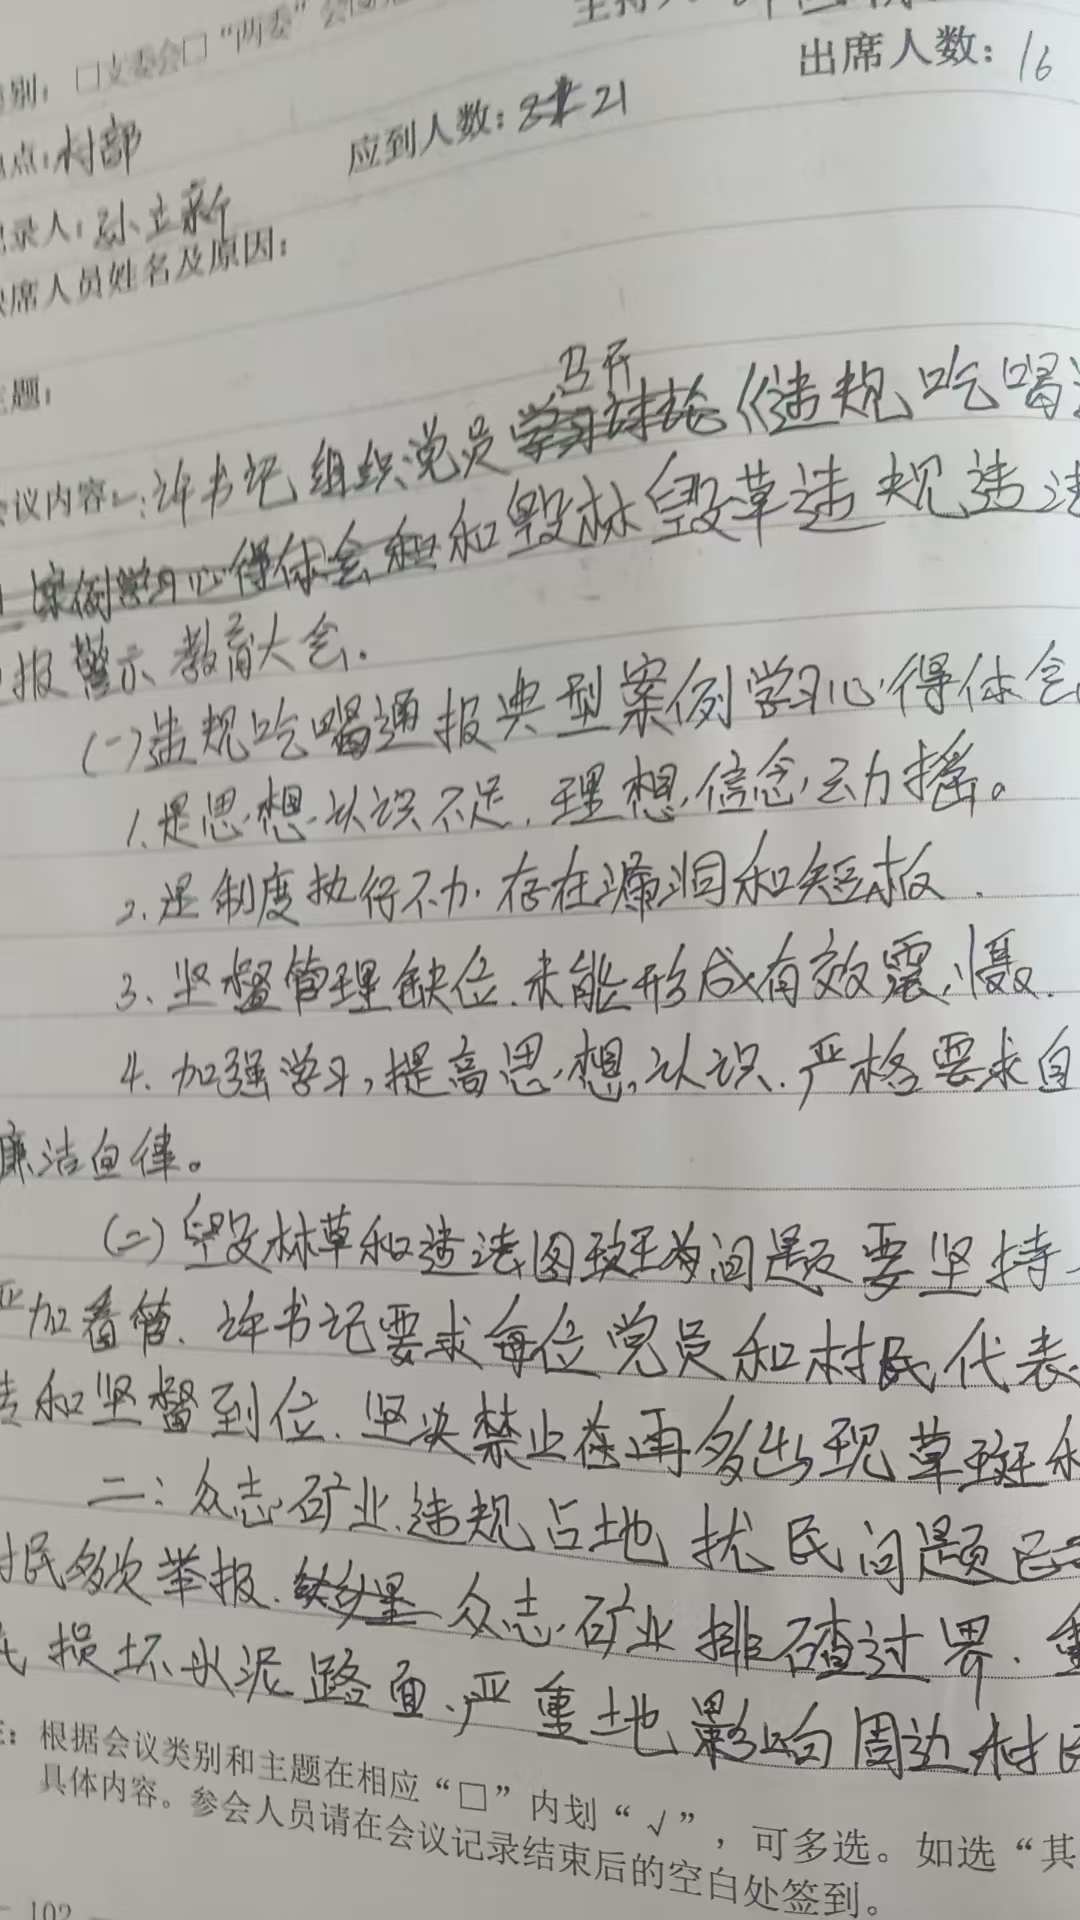 别：□支委会□“两委”会
主持人：许
出席人数：16
点：村部
应到人数：21
录人：孙立新
席人员姓名及原因：
题：
召开
会议内容：一：许书记组织党员学习讨论《违规吃喝
案例学习心得体会和和毁林毁草违规违法
报警示教育大会.
(一)违规吃喝通报典型案例学习心得体会
1.是思想认识不足.理想信念动摇。
2.是制度执行不力.存在漏洞和短板.
3、坚督管理缺位.未能形成有效震慑.
4.加强学习,提高思想认识.严格要求自
廉洁自律。
(二)毁林草和违法图斑为问题要坚持
严加看管.许书记要求每位党员和村民代表
和坚督到位.坚决禁止在再多出现草斑
二：众志矿业违规占地扰民问题已
村民多次举报.众志矿业排碴过界.重
损坏水泥路面、严重地影响周边村民
：根据会议类别和主题在相应“□”内划“√”，可多选。如选“其
具体内容。参会人员请在会议记录结束后的空白处签到。
102